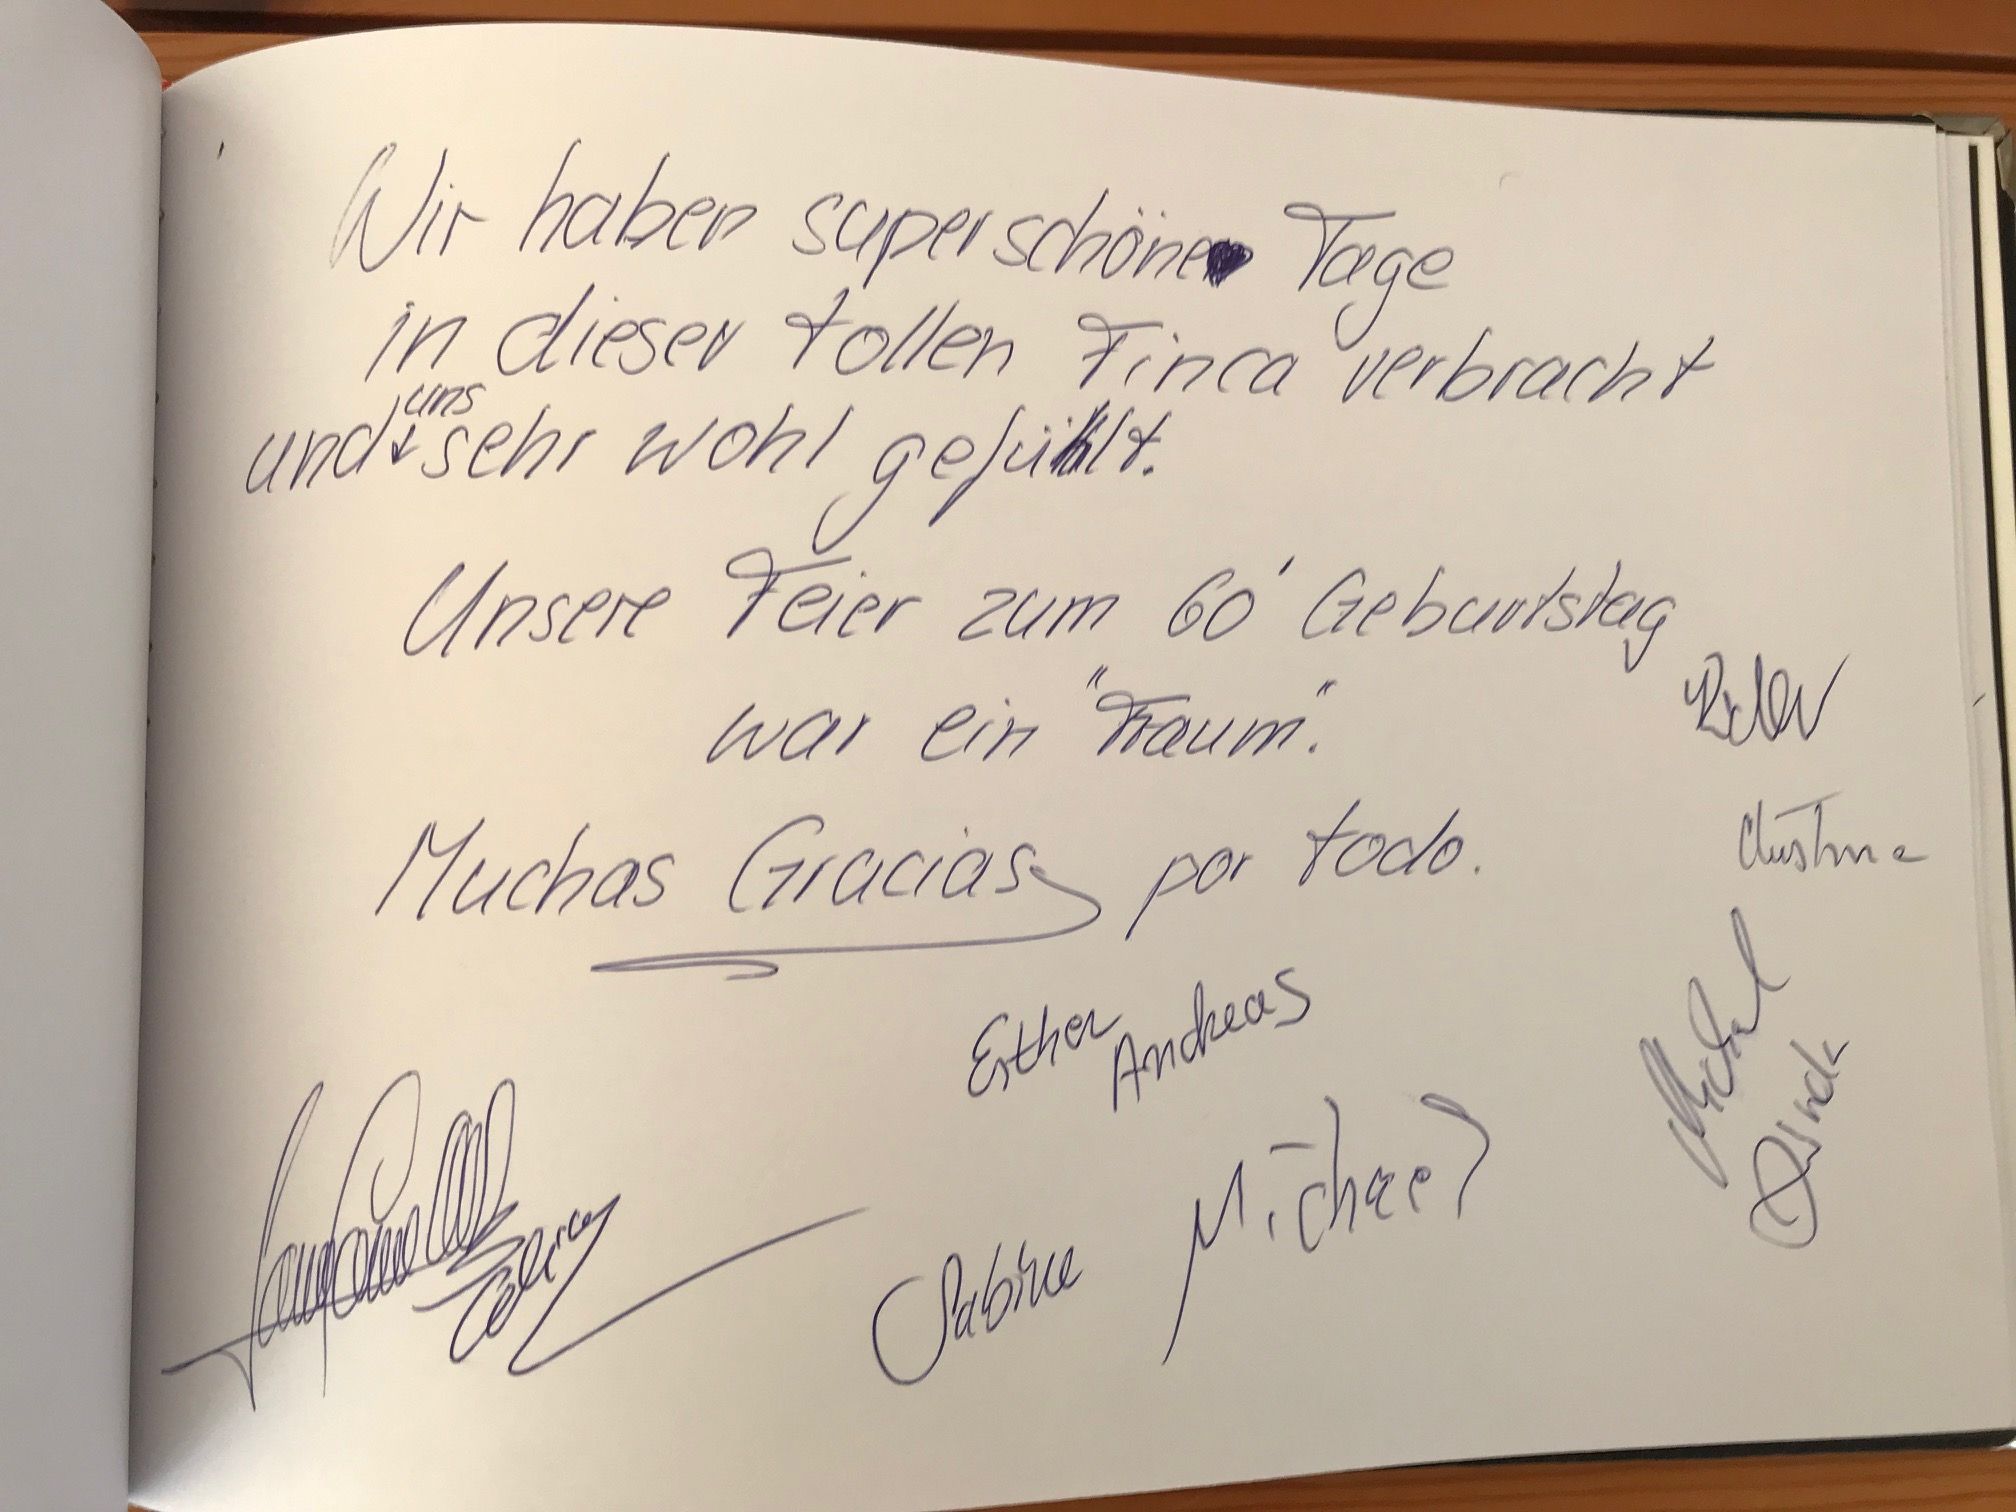 Wir haben super schöne Tage
in dieser tollen Finca verbracht
und uns sehr wohl gefühlt.
Unsere Feier zum 60' Geburtstag
war ein "Traum".
Muchas Gracias por todo.
Christine
Esther
Andreas
Michael
Michael
Sabine